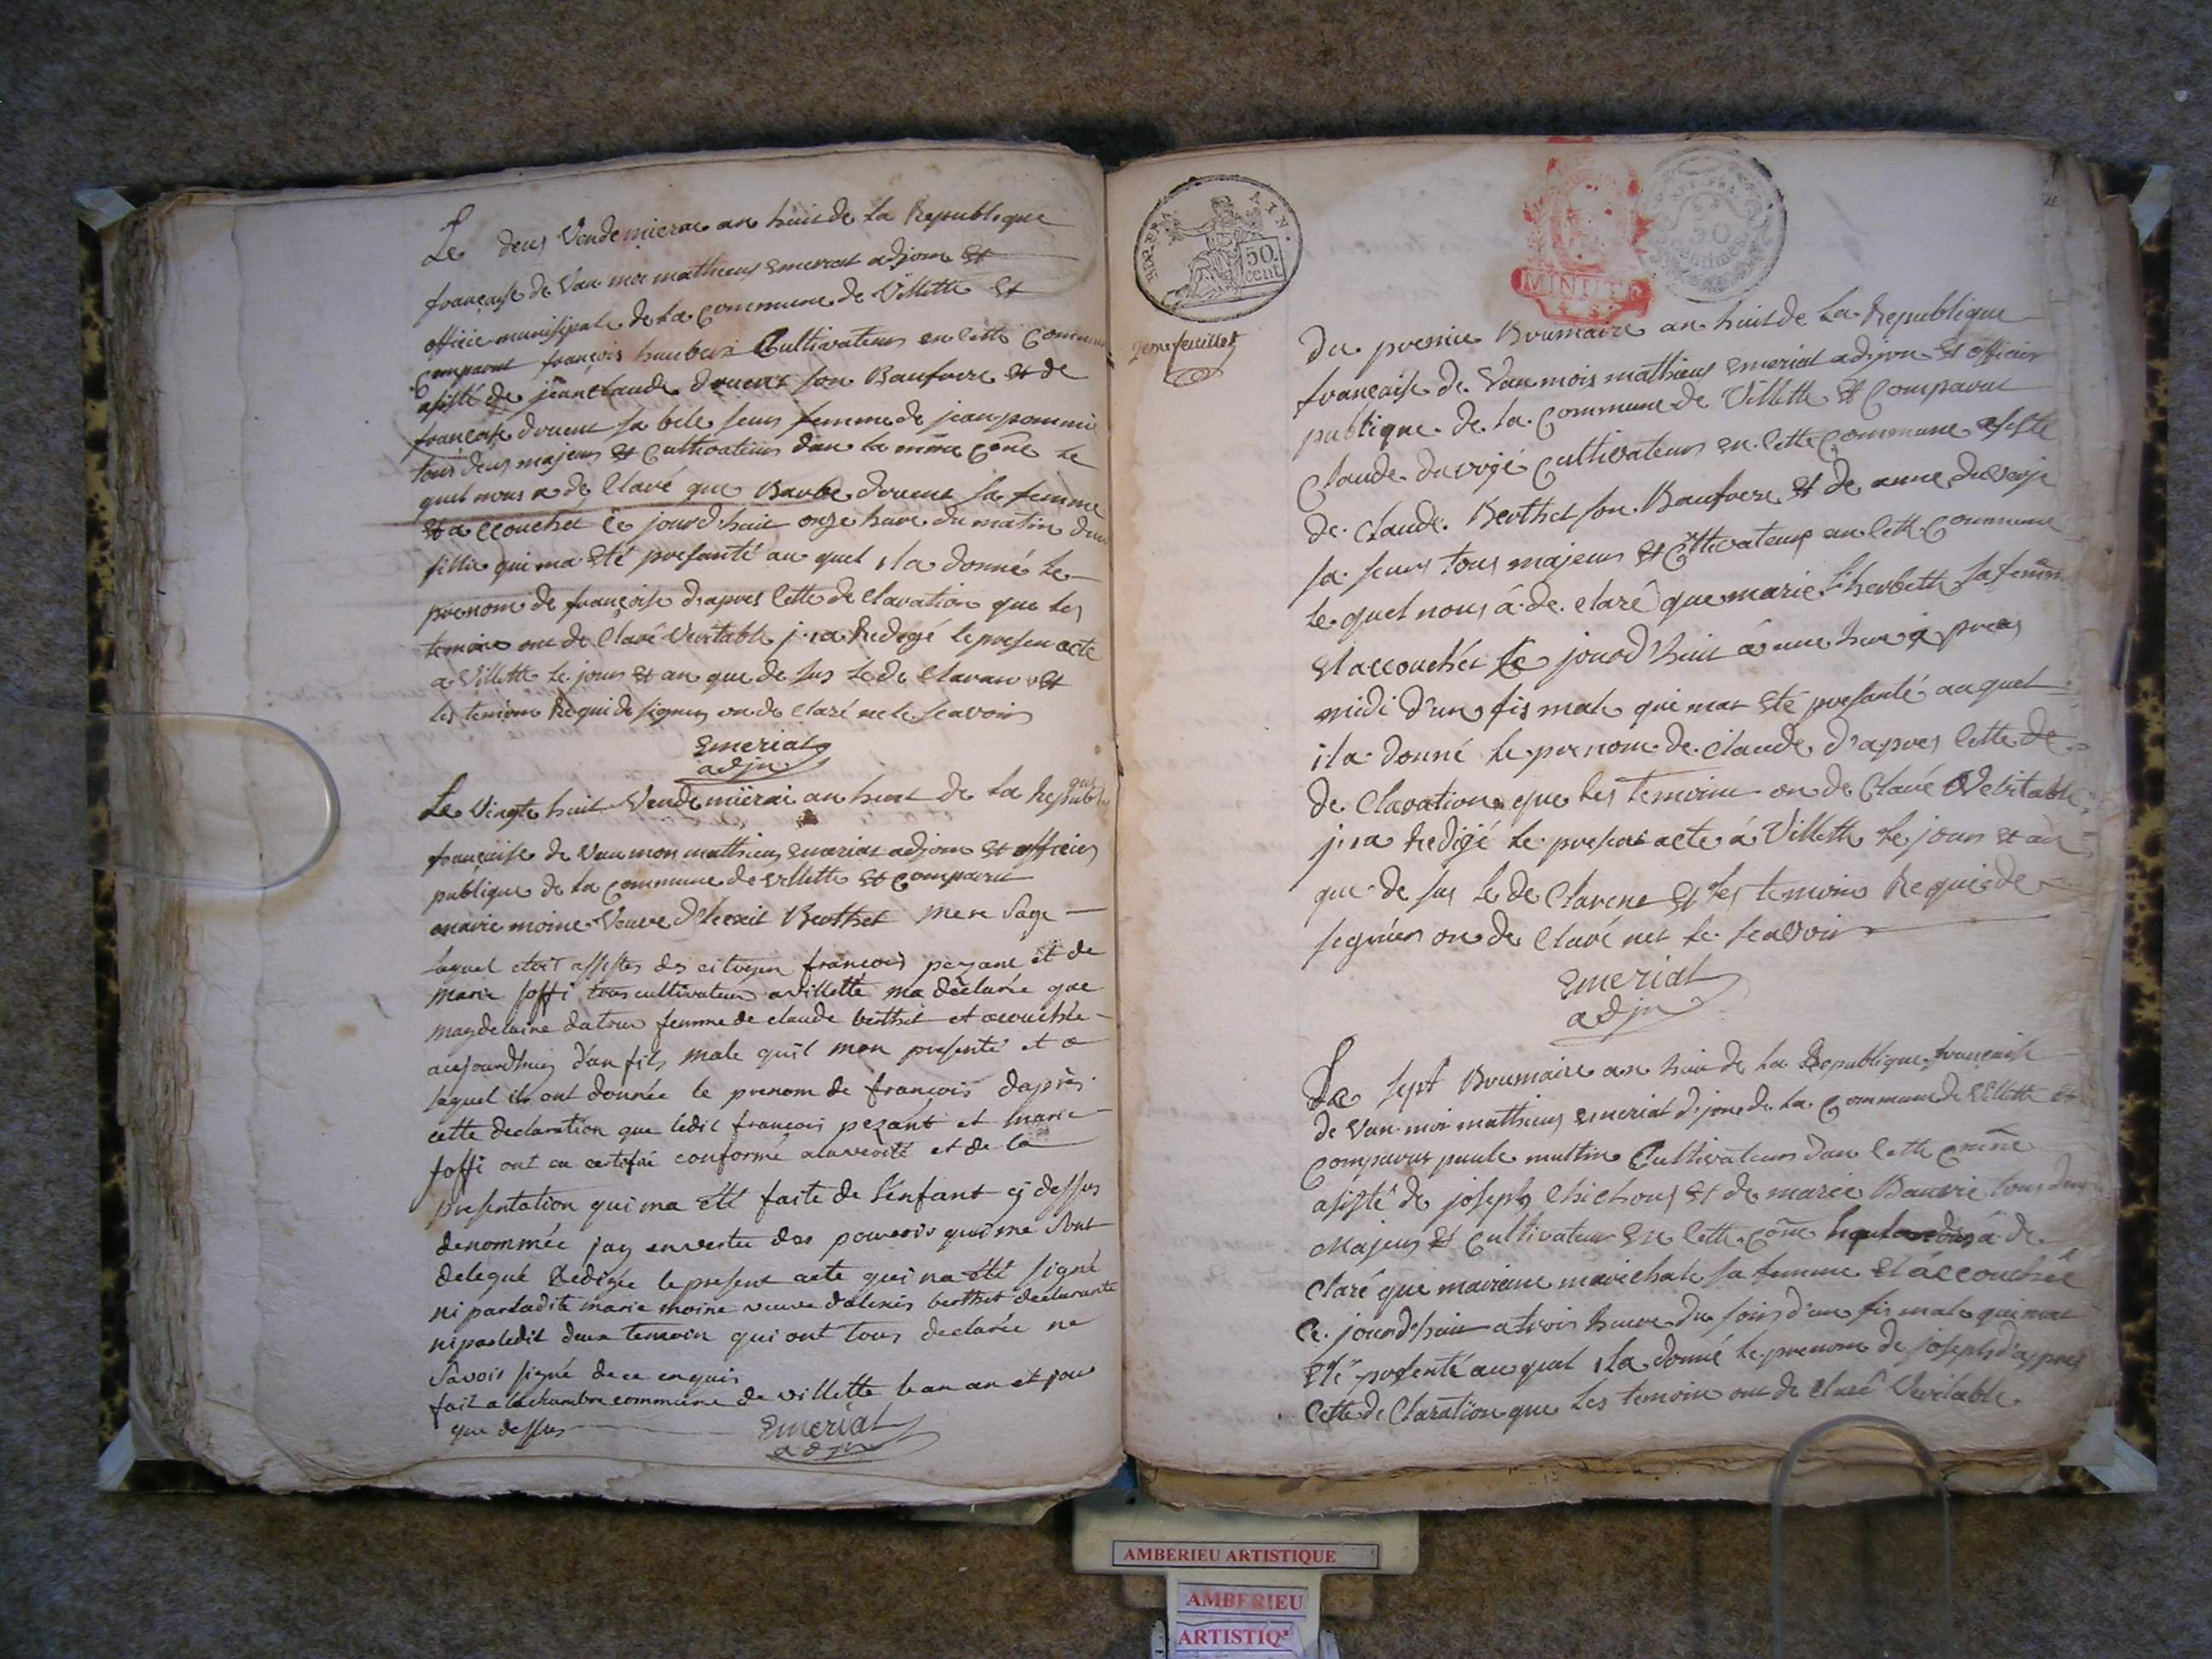 Le deus Vendemierae an huit de la Republique
française de Van moi mathieus Emeriat adjoin et
officie munisipale de la commune de Villette et
comparut françois humbert Cultivateur en cette commune
asisté de jean claude druent son Baufrere et de
française druent sa bele seur femme de jean pommie
tous deus majeus et Cultivateurs dan la mme Cone le
quel nous a de Claré que Barbe druent sa femme
et accouchet ce jourd'huit onze heure du matin dune
fillie qui ma Eté presanté au quel il a donné le
prenom de françoise d'apres cette de Claration que les
temoins on de Claré Veritable j'i a Redigé le presen acte
a Villette le jour et an que de sus le de Claran et
les temoins Requi de signer on de Claré ne le scavoir
Emeriat
adjn
Le Vingte huit Vendemiërai an huit de la Republique
française de Van mon mathieus Emeriat adjoin et officier
publique de la commune de villette et comparut
marie moine Veuve d'lecxit Berthet mere sage
laquel etoit assistes des citoyen francois pezant et de
marie joffi tous cultivateur a villette ma déclarée que
magdelaine datour femme de claude berthet et acouchée
aujourdhuy d'un fils male quil mon presenté et a
laquel ils ont donnée le prenom de francois daprès
cette declaration que ledit francois pezant et marie
joffi ont en certifié conforme a la verité et de la
presentation qui ma été faite de l'enfant cy dessus
denommée jay en vertu des pouvoirs qui me sont
delequé Redigée le present acte qui na été signé
ni par ladite marie moine veuve d'alexis berthet declarante
ni par ledit deux temoin qui ont tous declarée ne
Savoir signé de ce enquis
fait a la chambre commune de villette le an an et jour
que dessus
Emeriat
adjn
REP. FRA
50
cent
TIN.
2eme feuillet
MINUTE
REP. FRA
50
centimes
Du premie Brumaire an huit de la Republique
française de Van mois mathieus Emeriat adjon et officier
publique de la commune de Villette et Comparut
Claude duvrjé Cultivateur en cette Commune asisté
de Claude Berthet son Baufrere et de anne duverje
sa seur tous majeur et Cultivateur en cette Commune
le quel nous â de claré que marie l'herbette sa femme
et accouchét le jourd'huit â une heure a preas
midi d'un fis male qui mat Eté presanté au quel
il a donné le pernom de Claude d'apres cette de
de Claration que les temoins on de Claré Veritable
j'i a Redigé le presens acte á Villette le jour et an
que de sus le de Clarene et les temoins Requis de
segnier on de Claré net le scavoir
Emeriat
adjn
Le sept Brumaire an huit de la Republique française
de Van moi mathieus Emeriat djon de la Commune de Villette et
Comparut paule muttin Cultivateur dan cette Comme
asisté de joseph Chichous et de marie Bauvie tous deus
Majeus et Cultivateur En cette Come a de
Claré que mairiane marechale sa femme et âccouchéé
Ce jourd'huit a trois heure du soir d'un fis male qui mat
Eté presenté au quel il a donné le prenom de joseph d'apres
cette de Claration que les temoin ont de claré Veritable
AMBERIEU ARTISTIQUE
AMBERIEU
ARTISTIQ